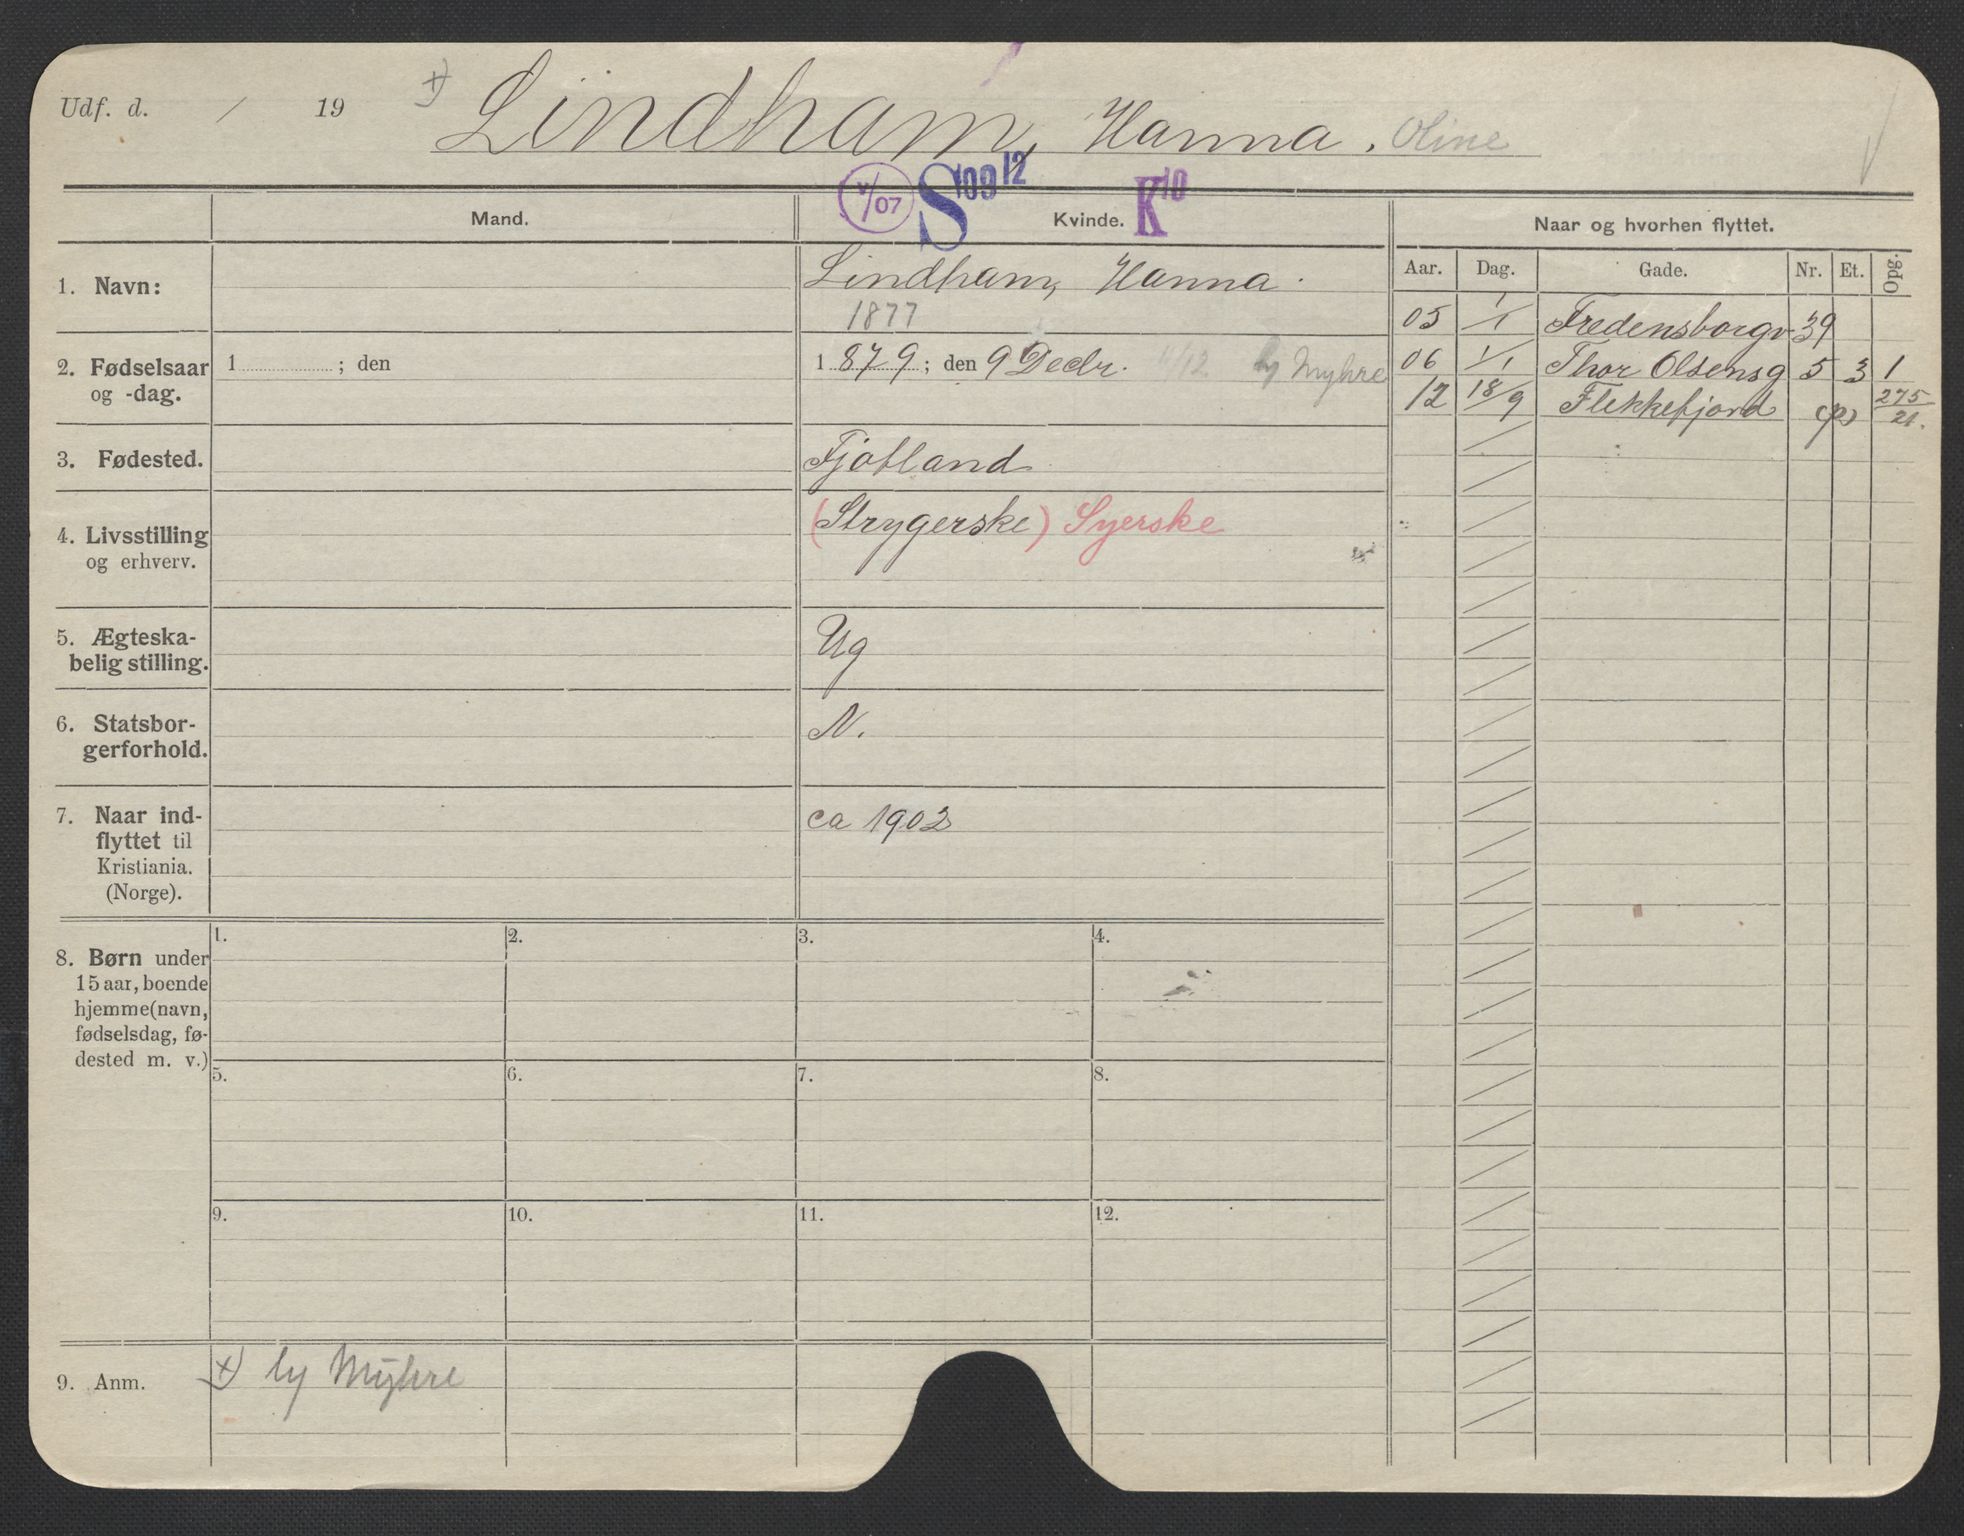 Udf. d. / 19 x) Lindham, Hanna. Oline
V/07 S 109 12 K 10
Mand. Kvinde. Naar og hvorhen flyttet.
Aar. Dag. Gade. Nr. Et. Opg.
1. Navn: Lindham, Hanna.
1877
05 1/1 Fredensborgv 39
2. Fødselsaar og -dag. 1 ; den 1879; den 9 Decbr. 11/12 Myhre
06 1/1 Thor Olsensg 5 3 1
12 18/9 Flekkefjord (p) 275/21.
3. Fødested. Fjotland
4. Livsstilling (Strygerske) Syerske
og erhverv.
5. Ægteska-
belig stilling. Ug
6. Statsbor-
gerforhold. N.
7. Naar ind-
flyttet til ca 1902
Kristiania.
(Norge).
8. Børn under
15 aar, boende
hjemme (navn,
fødselsdag, fø-
dested m. v.)
1. 2. 3. 4.
5. 6. 7. 8.
9. 10. 11. 12.
9. Anm. x) Myhre